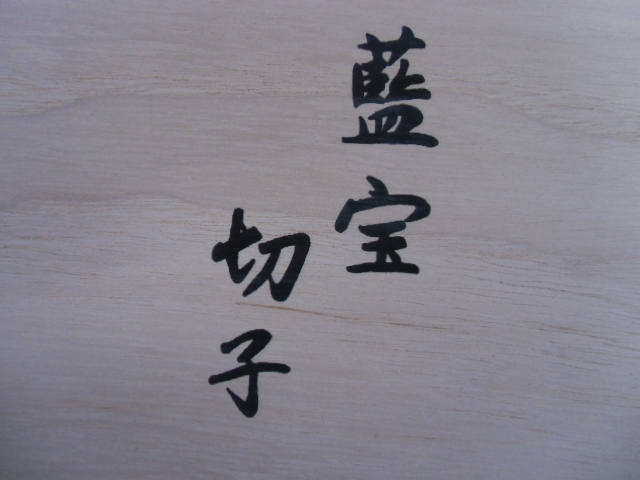 藍宝
切子